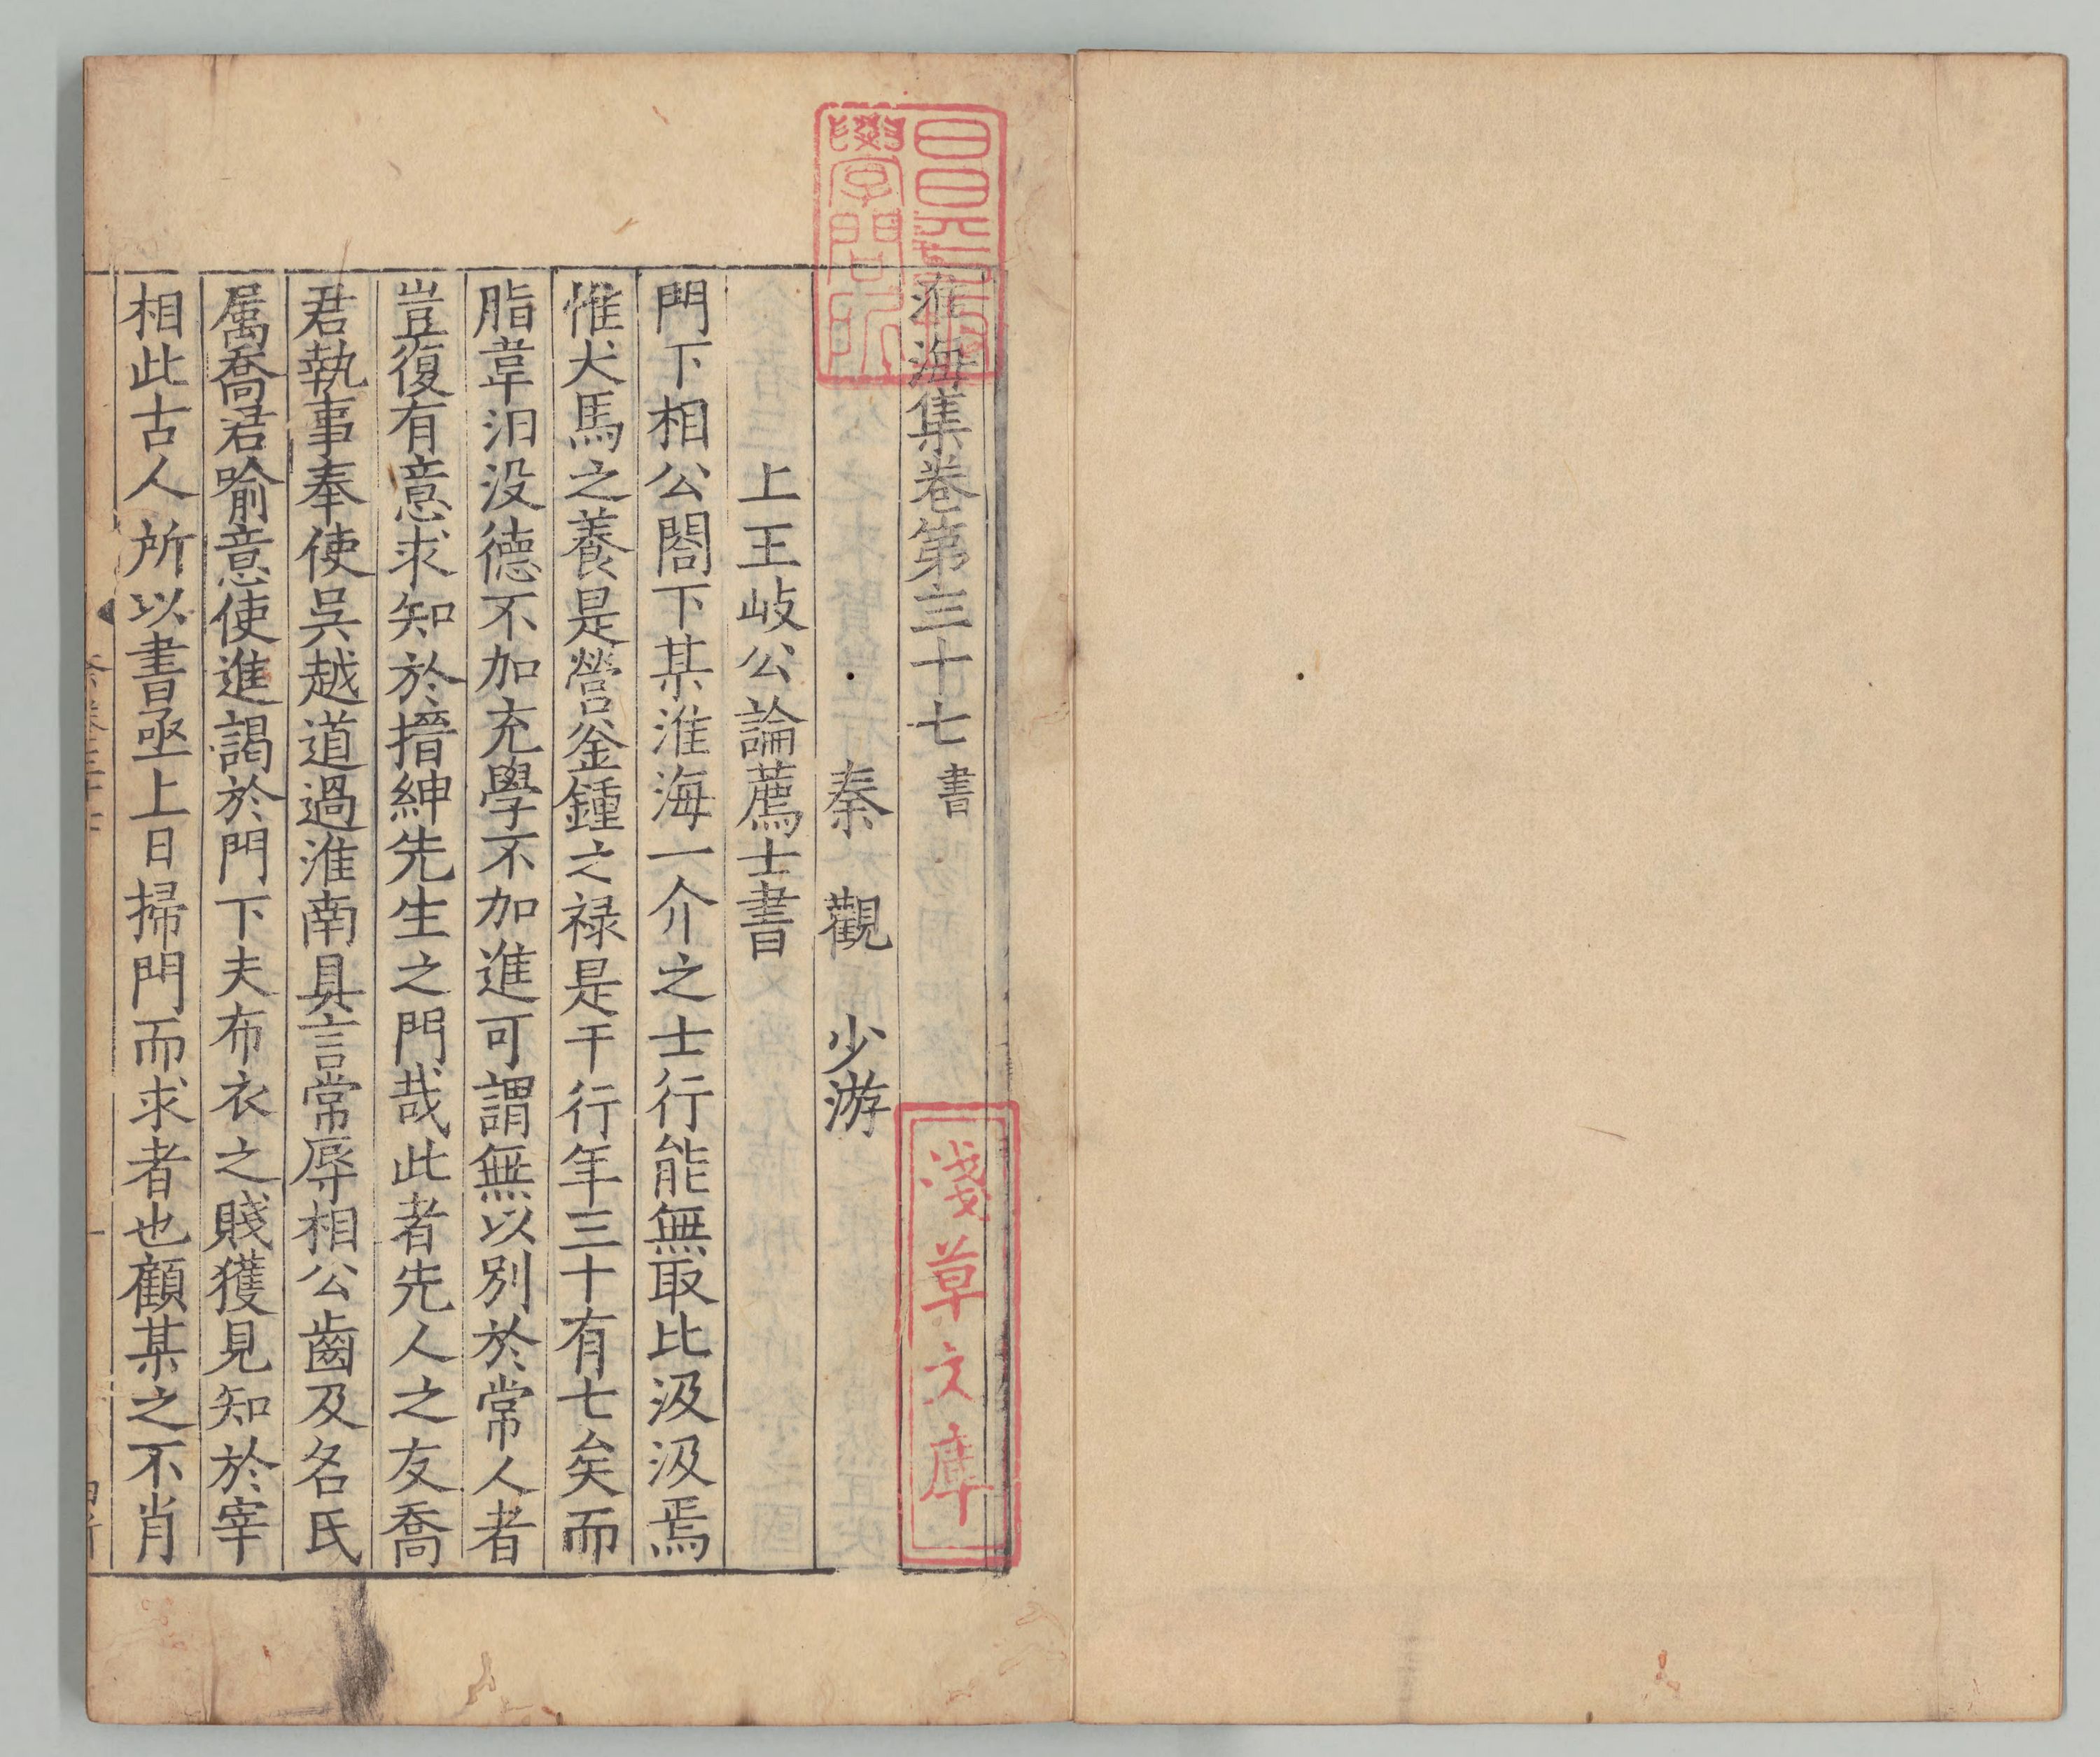 淮海集卷第三十七 書
秦 觀 少游
上王岐公論薦士書
門下相公閤下某淮海一介之士行能無取比汲汲焉
惟犬馬之養是營釜鍾之禄是干行年三十有七矣而
脂韋汨没德不加充學不加進可謂無以別於常人者
豈復有意求知於搢紳先生之門哉此者先人之友喬
君執事奉使吳越道過淮南具言常辱相公齒及名氏
属喬君喻意使進謁於門下夫布衣之賤獲見知於宰
相此古人所以書亟上日掃門而求者也顧某之不肖
昌平坂
學問所
淺草文庫